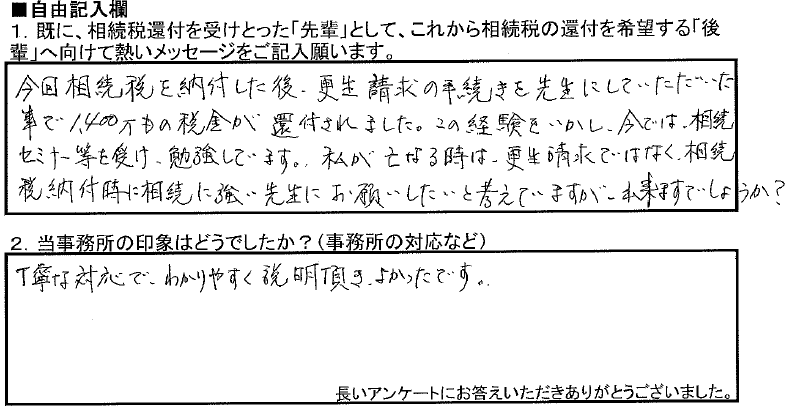 ■自由記入欄
1. 既に、相続税還付を受けとった「先輩」として、これから相続税の還付を希望する「後
輩」へ向けて熱いメッセージをご記入願います。
今回相続税を納付した後、更生請求の手続きを先生にしていただいた
事で1,400万もの税金が還付されました。この経験をいかし、今では、相続
セミナー等を受け、勉強しています。私が亡なる時は、更生請求ではなく、相続
税納付時に相続に強い先生にお願いしたいと考えていますが、出来ますでしょうか?
2. 当事務所の印象はどうでしたか?(事務所の対応など)
丁寧な対応で、わかりやすく説明頂き、よかったです。
長いアンケートにお答えいただきありがとうございました。